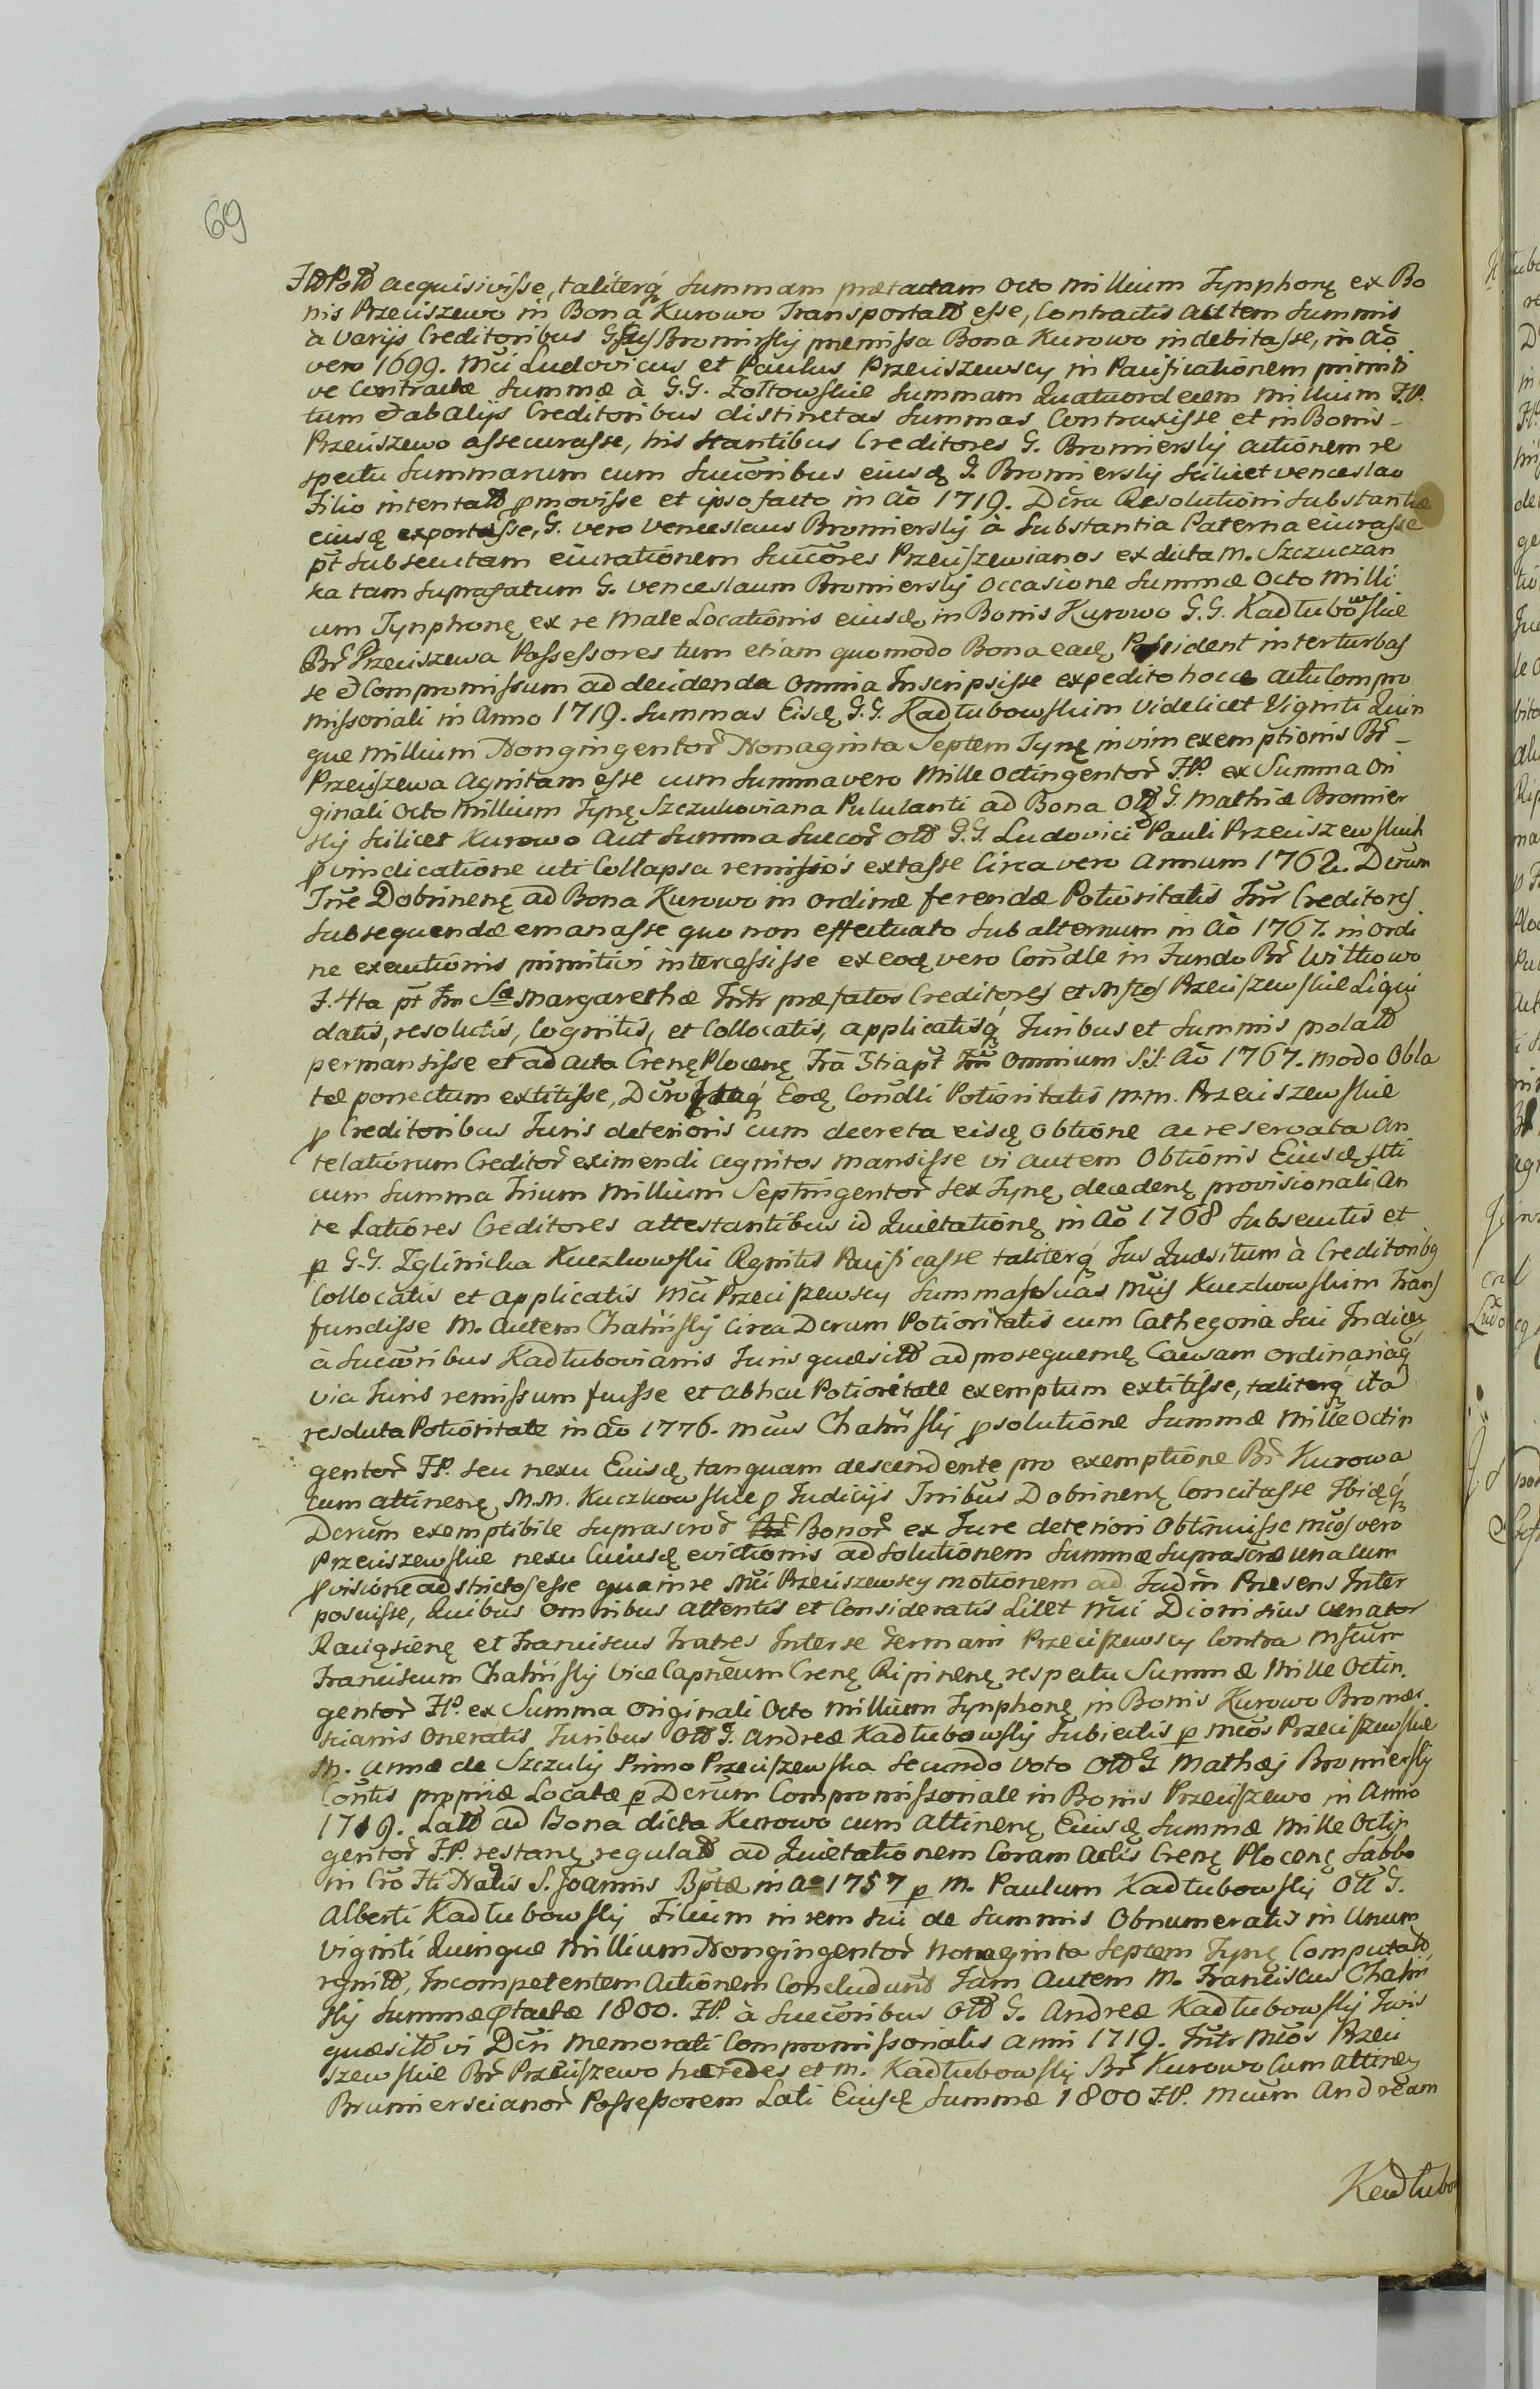 69
acquisivisse, taliterq summam prætactam octo millium Tynphonę ex Bo
nis Przeciszewo in Bona Kurowo Transportatt esse, Contractis autem Summis
à varijs Creditoribus Bromirsky præmissa Bona Kurowo indebitasse, in Aō
vero 1699. Mci Ludovicus et Paulus Przeciszewscy in Pacificationem primiti
ve Contractæ Summæ à G.G. Zołtowskie Summam Quatuordecem Millium F.P.
tum et ab alijs Creditoribus distinctas Summas Contraxisse et in Bonis
Przeciszewo assecurasse, his stantibus Creditores G. Bromiersky actionem re
spectu Summarum cum Succoribus eiusdę G. Bromiersky scilicet venceslao
Filio intentatt pmovisse et ipso facto in Aō 1719. Dcra Resolutioni Substantiæ
eiusdę exportasse, G. vero Venceslaus Bromiersky à Substantia Paterna eiurasse
pt subsecutam eiurationem Succores Przeciszewianos ex dicta M. Szczuczan
ka tam suprafatum G. Venceslaum Bromiersky occasione Summæ octo milli
um Tynphonę ex re male Locationis eiusdę, in Bonis Kurowo G.G. Kadłubowskie
Br Przeciszewa Possessores tum etiam quomodo Bona eadę Possident interturbas
se et Compromissum ad decidenda omnia Inscripsisse expedito hocce actu Compro
missoriali in Anno 1719. Summas Eisdę G.G. Kadłubowskim videlicet Viginti Quin
que Millium Nongingentor Nonaginta Septem Tynę in vim exemptionis Br
Przeciszewa Agnitam esse cum Summa vero Mille octingentor F.P. ex Summa Ori
ginali octo Millium Tynę Szczukoviana Pululanti ad Bona Ott G. Mathiæ Bromier
sky scilicet Kurowo aut Summa Succor Ott G.G. Ludovici Pauli Przeciszewskich
p vindicatione uti Collapsa remissos extasse Circa vero Annum 1762. Dcrum
Trre Dobrinenę ad Bona Kurowo in ordine ferendæ Potioritatis Intr Creditores
subsequendæ emanasse quo non effectuato subalternum in Aō 1767. in ordi
ne executionis primitivi intercessisse ex eodę vero Condle in Fundo Br Wittkowo
F. 4ta pt Fm Sæ Margarethæ Intr præfatos Creditores et Przeciszewskie Liqui
datis, resolutis, Cognitis, et Collocatis, applicatisq Juribus et Summis prolatt
permansisse et ad acta Crenę Plocenę Fra 3tia pt Omnium S.S. Aō 1767. modo Obla
tæ porrectum extitisse, Eodę Condli Potioritatis M.M. Przeciszewskie
p Creditoribus Juris deterioris cum decreta eisdę obtione ac reservata an
telatiorum Creditor eximendi agnitos mansisse vi autem Obtionis Eiusdę
cum Summa Trium Millium Septingentor sex Tynę, decedenę provisionali An
te Latiores Creditores attestantibus id Quietationę in Aō 1768 Subsecutis et
p G.G. Zglinicka Kuczkowski Agnitis Pacificasse taliterq Jus Quæsitum à Creditoribq
Collocatis et applicatis Mci Przeciszewscy Summas suas Mcis Kuczkowskim Trans
fundisse M. Autem Chalinsky Circa Dcrum Potioritatis cum Cathegoria sui Indicey
à Succoribus Kadłubovianis Juris quæsitt ad prosequenę Causam ordinariaq
via Juris remissum fuisse et ab hac Potioritate exemptum extitisse, taliterq ita
resoluta Potioritate in Aō 1776. Mcus Chalinsky p solutione Summæ Mille Octin
gentor F.P. seu nexu Eiusdę, tanquam descendente pro exemptione Br Kurowa
cum attinenę, M.M. Kuczkowskie p Judicijs Trribus Dobrinenę Concitasse Ibidęq
Dcrum exemptibile suprascror Bonor ex Jure deteriori Obtinuisse Mcos vero
Przeciszewskie nexu Cuiusdę evictionis ad solutionem Summæ suprascræ una cum
pvisione adstrictos esse qua in re Mci Przeciszewscy motionem ad Judm Præsens Inter
posuisse, Quibus omnibus attentis et Consideratis Licet Mci Dionisius venator
Ravigsienę et Franciscus Fratres Inter se Germani Przeciszewscy Contra
Franciscum Chalinsky Vice Capneum Crenę Ripinenę respectu Summæ Mille Octin
gentor F.P. ex Summa originali octo millium Tynphonę in Bonis Kurowo Bromier
scianis oneratis Juribus Ott G. Andreæ Kadłubowsky subjectis p Mcos Przeciszewskie
M. Annæ de Szczuky Primo Przeciszewska secundo voto Ott G Mathæj Bromiersky
Contis propriæ Locatæ p Dcrum Compromissoriale in Bonis Przeciszewo in Anno
1719. Latt ad Bona dicta Kurowo cum attinenę Eiusdę Summæ Mille Octin
gentor F.P. restanę regulatt ad Quietationem Coram Actis Crenę Plocenę Sabbo
in Cro Fti Natis S. Joannis Bptæ in Ao 1757 p M. Paulum Kadłubowsky Ott G.
Alberti Kadłubowsky Filium in rem sui de Summis Obnumeratis in Unum
Viginti Quinque Millium Nongingentor Nonaginta Septem Tynę Computatt
rgnitt, Incompetentem actionem Concludunt Jam autem M. Franciscus Chalin
sky Summæ ptactæ 1800. F.P. à Succoribus Ott G. Andreæ Kadłubowsky Juris
quæsitt vi Dcri memorati Compromissorialis Anni 1719. Intr Mcos Przeci
szewskie Br Przeciszewo hæredes et M. Kadłubowsky Br Kurowo Cum Attiney
Brumierscianor Possessorem Lati Eiusdę Summæ 1800 F.P. Mcum Andream
Kadłubo